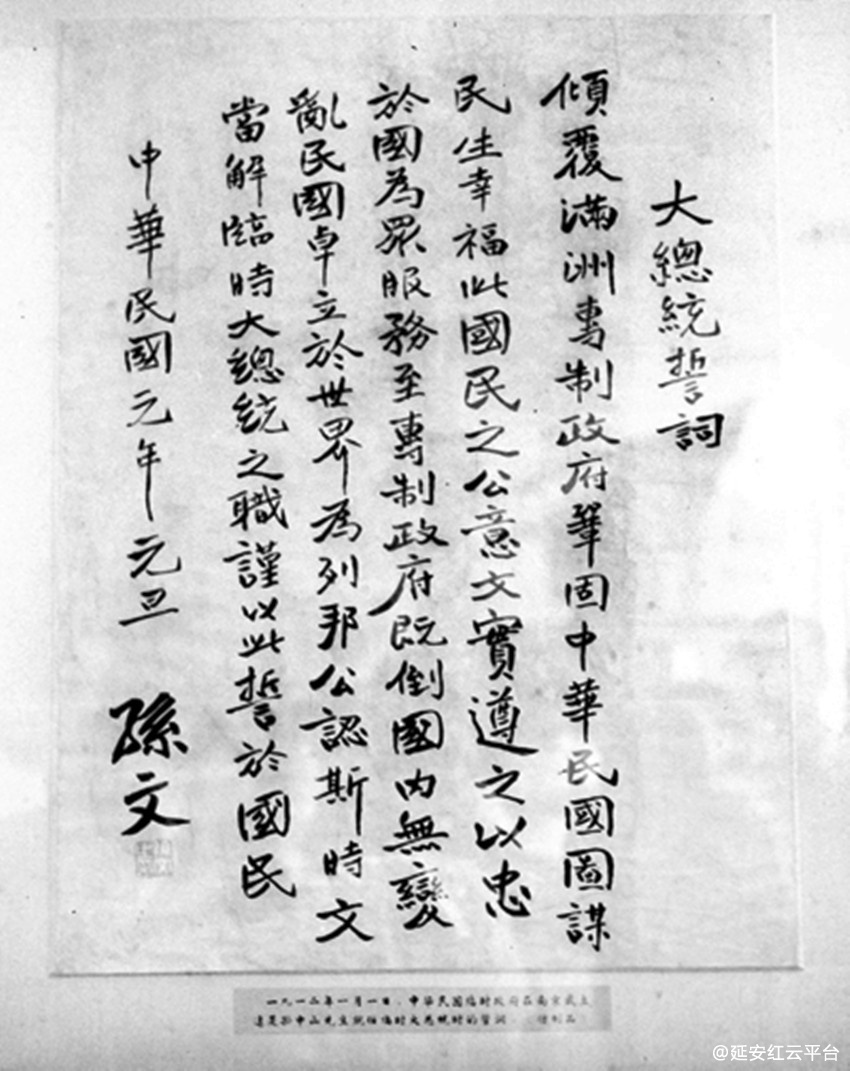 大總統誓詞
傾覆滿洲專制政府鞏固中華民國圖謀
民生幸福此國民之公意文實遵之以忠
於國為眾服務至專制政府既倒國內無變
亂民國卓立於世界為列邦公認斯時文
當解臨時大總統之職謹以此誓於國民
中華民國元年元旦
孫文
一九一二年一月一日，中华民国临时政府在南京成立
这是孙中山先生就任临时大总统时的誓词。（复制品）
@延安红云平台